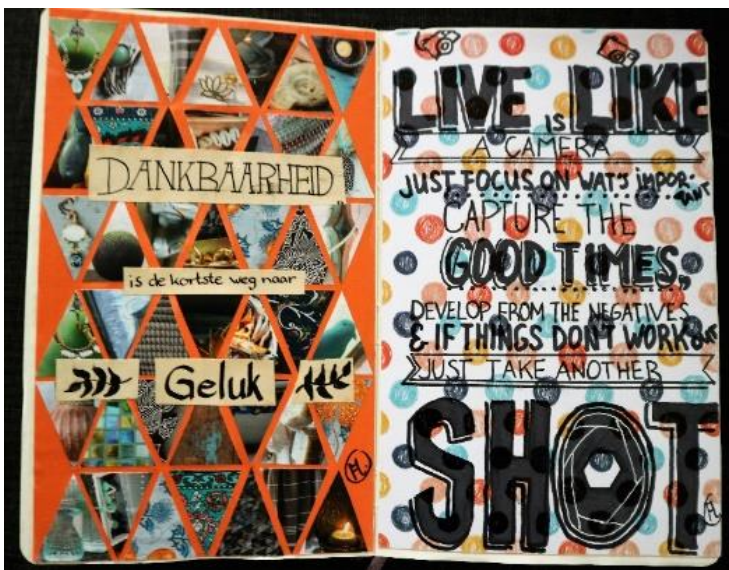 DANKBAARHEID
is de kortste weg naar
Geluk
LIVE IS LIKE
A CAMERA
JUST FOCUS ON WAT'S IMPOR-
TANT
CAPTURE THE
GOOD TIMES,
DEVELOP FROM THE NEGATIVES
& IF THINGS DON'T WORK OUT
JUST TAKE ANOTHER
SHOT